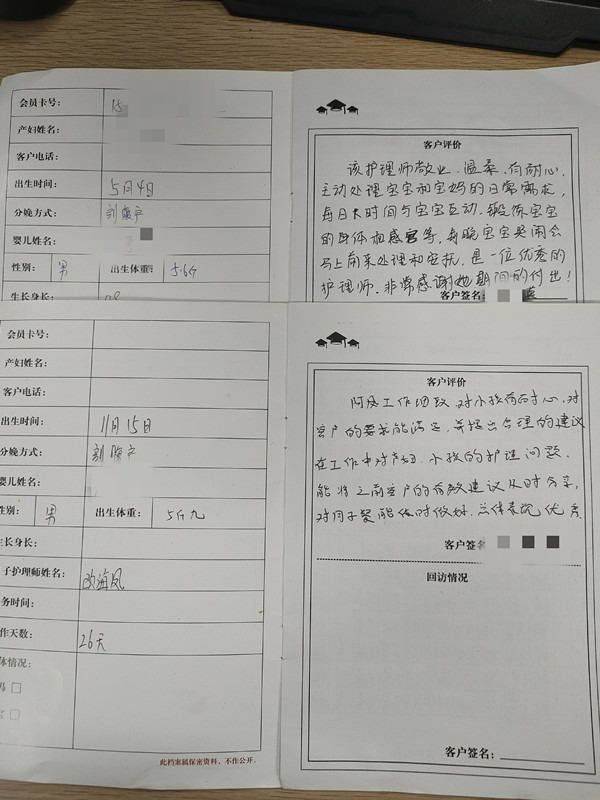 会员卡号: 15
产妇姓名:
客户电话:
出生时间: 5月4日
分娩方式: 剖腹产
婴儿姓名:
性别: 男 出生体重: 5.6斤
生长身长:
客户评价
该护理师敬业、温柔、有耐心,
主动处理宝宝和宝妈的日常需求,
每日大时间与宝宝互动,锻炼宝宝
的身体和感官等,每晚宝宝哭闹会
马上前来处理和安抚,是一位优秀的
护理师,非常感谢她期间的付出!
客户签名:
会员卡号:
产妇姓名:
客户电话:
出生时间: 11月15日
分娩方式: 剖腹产
婴儿姓名:
性别: 男 出生体重: 5斤九
生长身长:
子护理师姓名: 欧海凤
务时间:
作天数: 26天
体情况:
此档案属保密资料,不作公开。
客户评价
阿凤工作细致,对小孩有耐心,对
客户的要求能满足,并提出合理的建议
在工作中对产妇、小孩的护理问题,
能将之前客户的有效建议及时分享,
对月子餐能依时做好,总体表现优秀
客户签名
回访情况
客户签名: